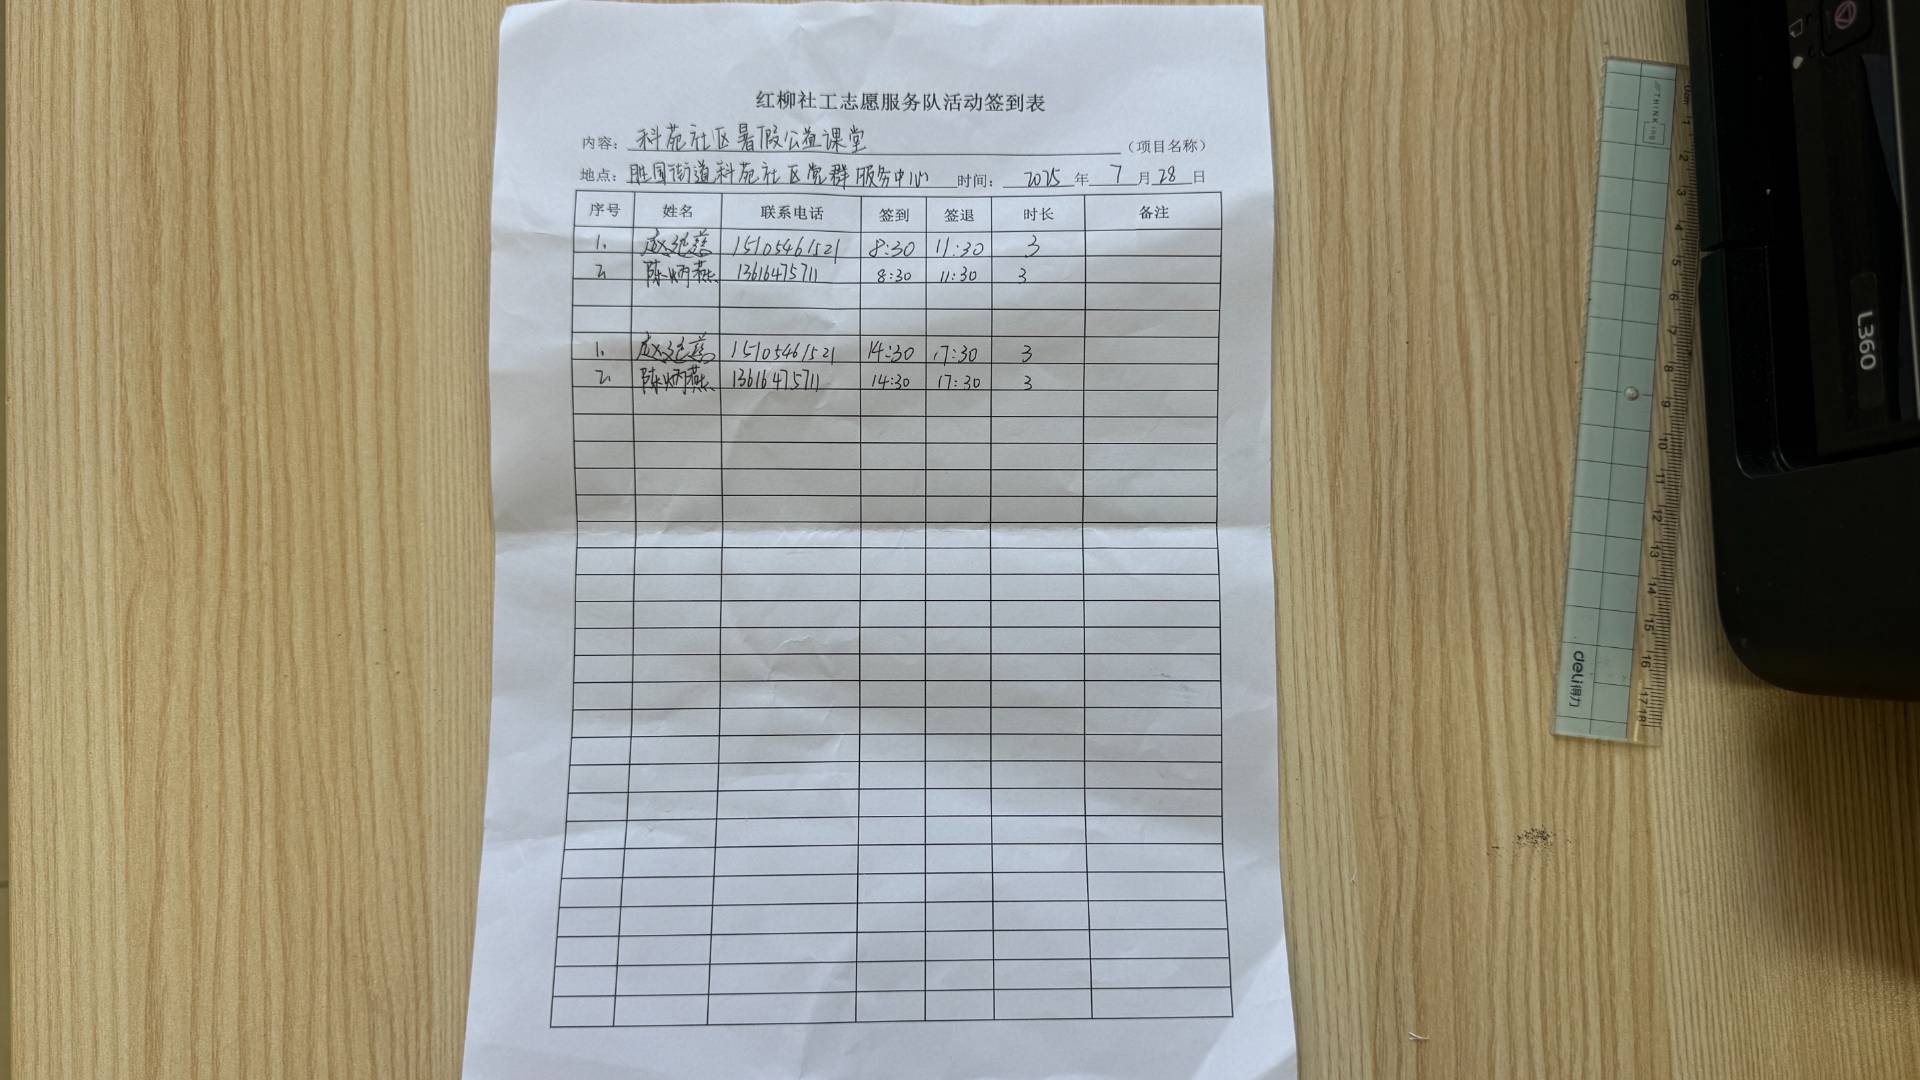 红柳社工志愿服务队活动签到表
内容：科苑社区暑假公益课堂（项目名称）
地点：胜园街道科苑社区党群服务中心 时间：2025年7月28日
序号 姓名 联系电话 签到 签退 时长 备注
1、 赵延慈 15105461521 8:30 11:30 3
2 陈炳燕 13616475711 8:30 11:30 3
1、 赵延慈 15105461521 14:30 17:30 3
2 陈炳燕 13616475711 14:30 17:30 3
THINK
0cm 1 2 3 4 5 6 7 8 9 10 11 12 13 14 15 16 17 18
deli得力
L360